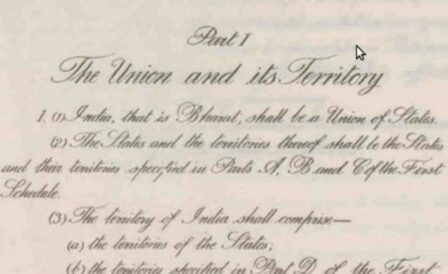 Part I
The Union and its Territory
1. (1) India, that is Bharat, shall be a Union of States.
(2) The States and the territories thereof shall be the States
and their territories specified in Parts A, B and C of the First
Schedule.
(3) The territory of India shall comprise—
(a) the territories of the States;
(b) the territories specified in Part D of the First